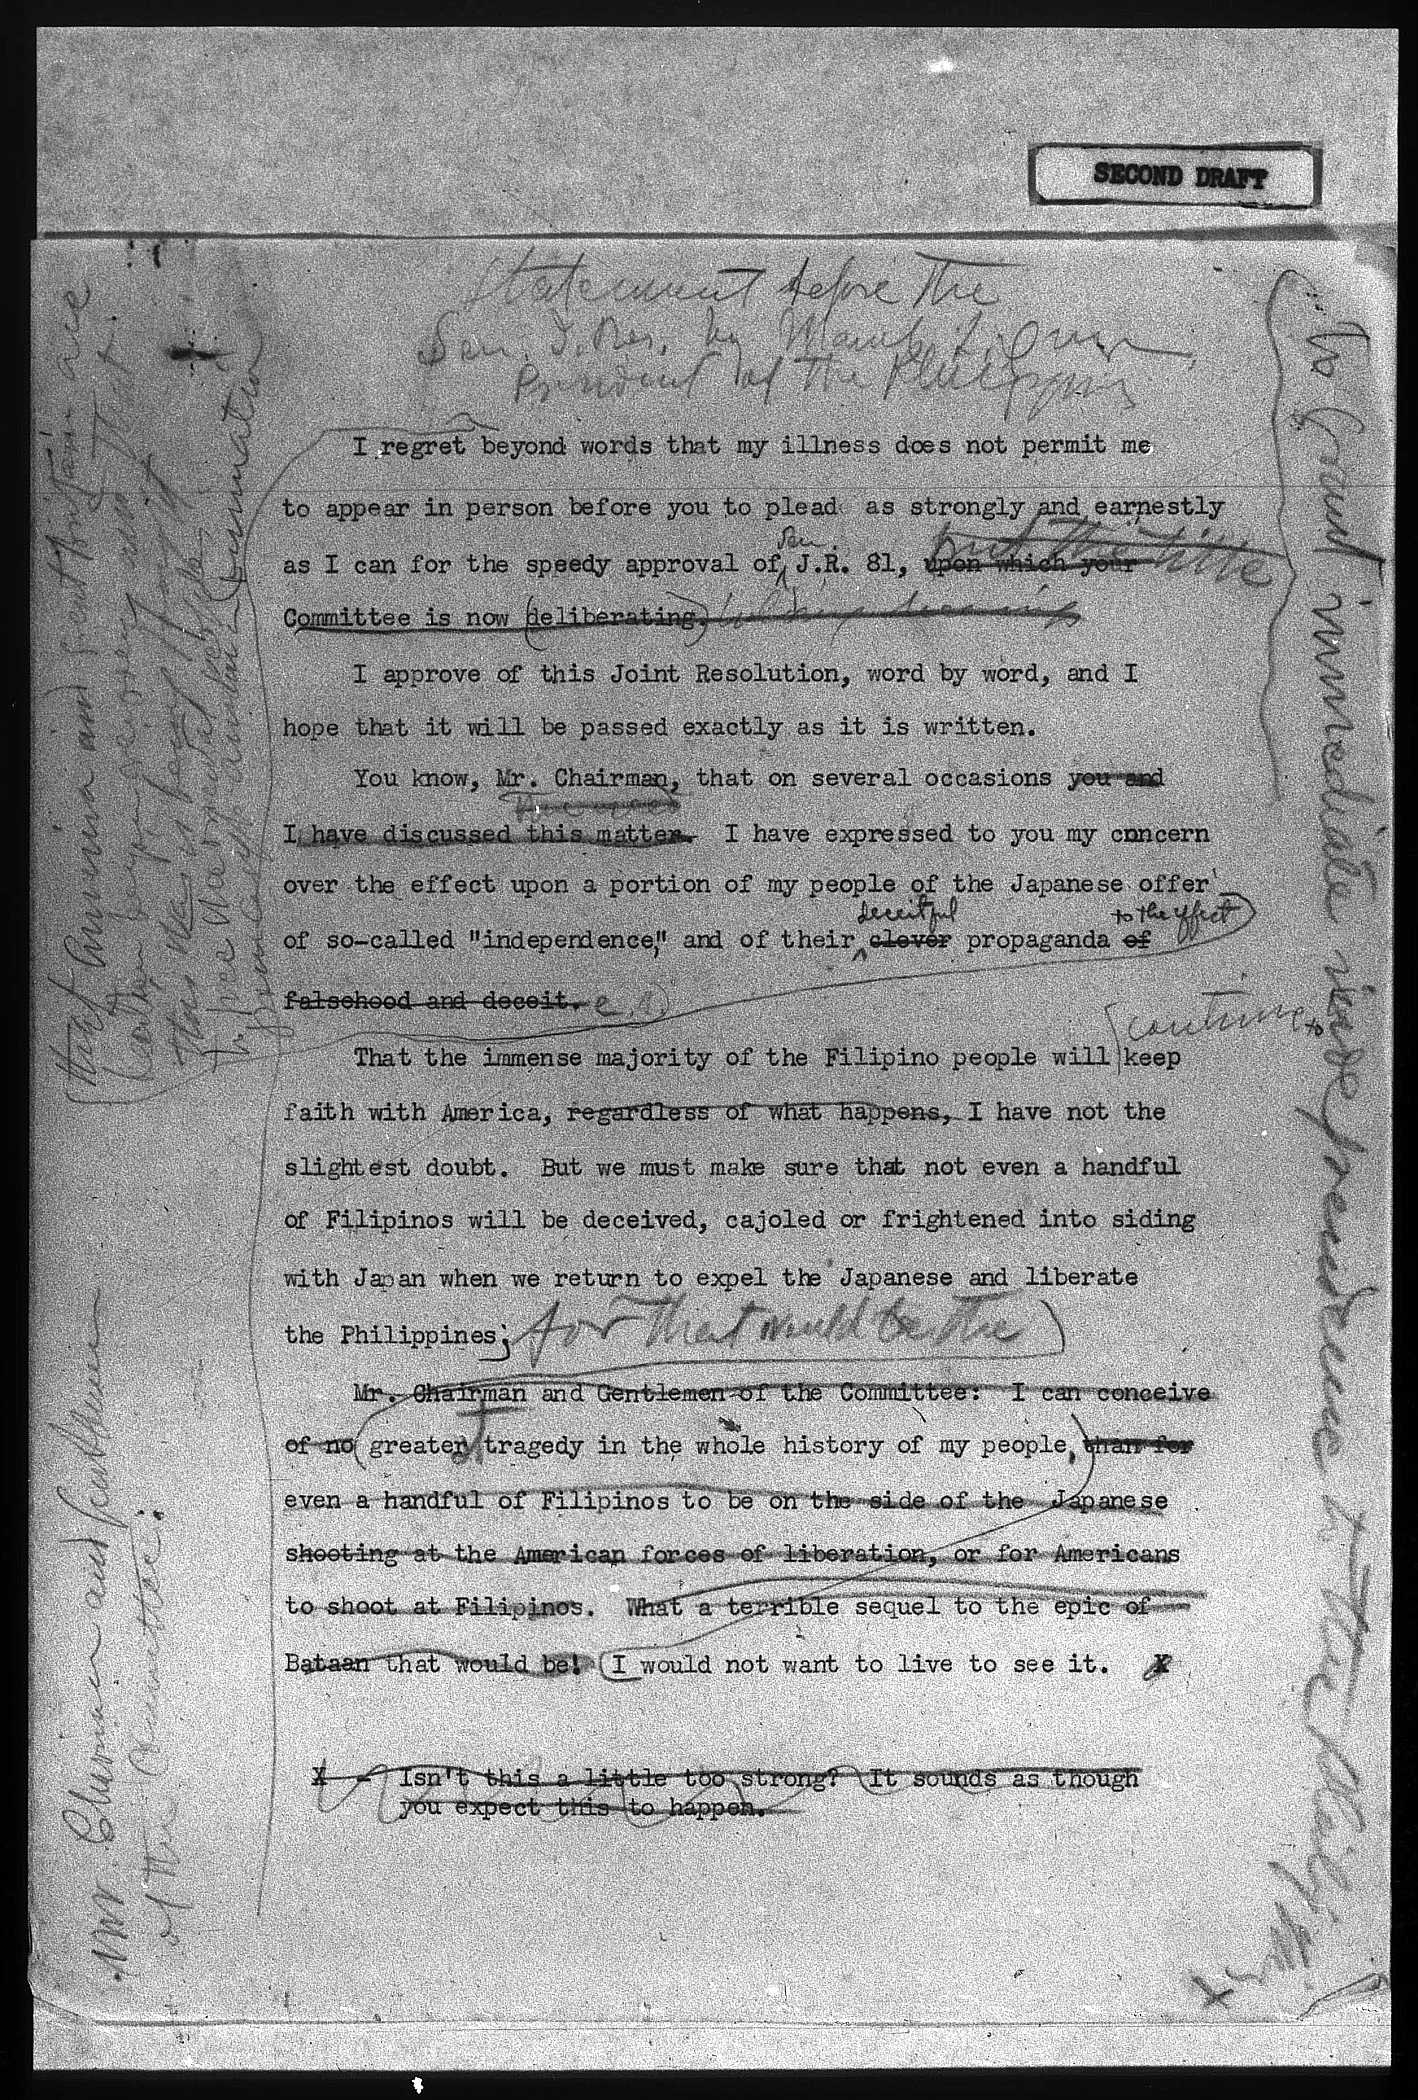 SECOND DRAFT
Statement before the
Sen. J. Res. by Manuel L. Quezon,
President of the Philippines
I regret beyond words that my illness does not permit me
to appear in person before you to plead as strongly and earnestly
Sen.
as I can for the speedy approval of J.R. 81, upon which your
but the time
Committee is now deliberating.
I approve of this Joint Resolution, word by word, and I
hope that it will be passed exactly as it is written.
You know, Mr. Chairman, that on several occasions you and
I have discussed this matter. I have expressed to you my concern
over the effect upon a portion of my people of the Japanese offer
deceitful to the effect
of so-called "independence," and of their clever propaganda of
falsehood and deceit.
continue to
That the immense majority of the Filipino people will keep
faith with America, regardless of what happens, I have not the
slightest doubt. But we must make sure that not even a handful
of Filipinos will be deceived, cajoled or frightened into siding
with Japan when we return to expel the Japanese and liberate
the Philippines; for that would be the
Mr. Chairman and Gentlemen of the Committee: I can conceive
of no greater tragedy in the whole history of my people, than for
even a handful of Filipinos to be on the side of the Japanese
shooting at the American forces of liberation, or for Americans
to shoot at Filipinos. What a terrible sequel to the epic of
Bataan that would be! I would not want to live to see it. X
X - Isn't this a little too strong? It sounds as though
you expect this to happen.
that America and Great Britain are
this war is being fought
Mr. Chairman and Gentlemen
of the Committee:
to grant immediate independence to the Philippines
X